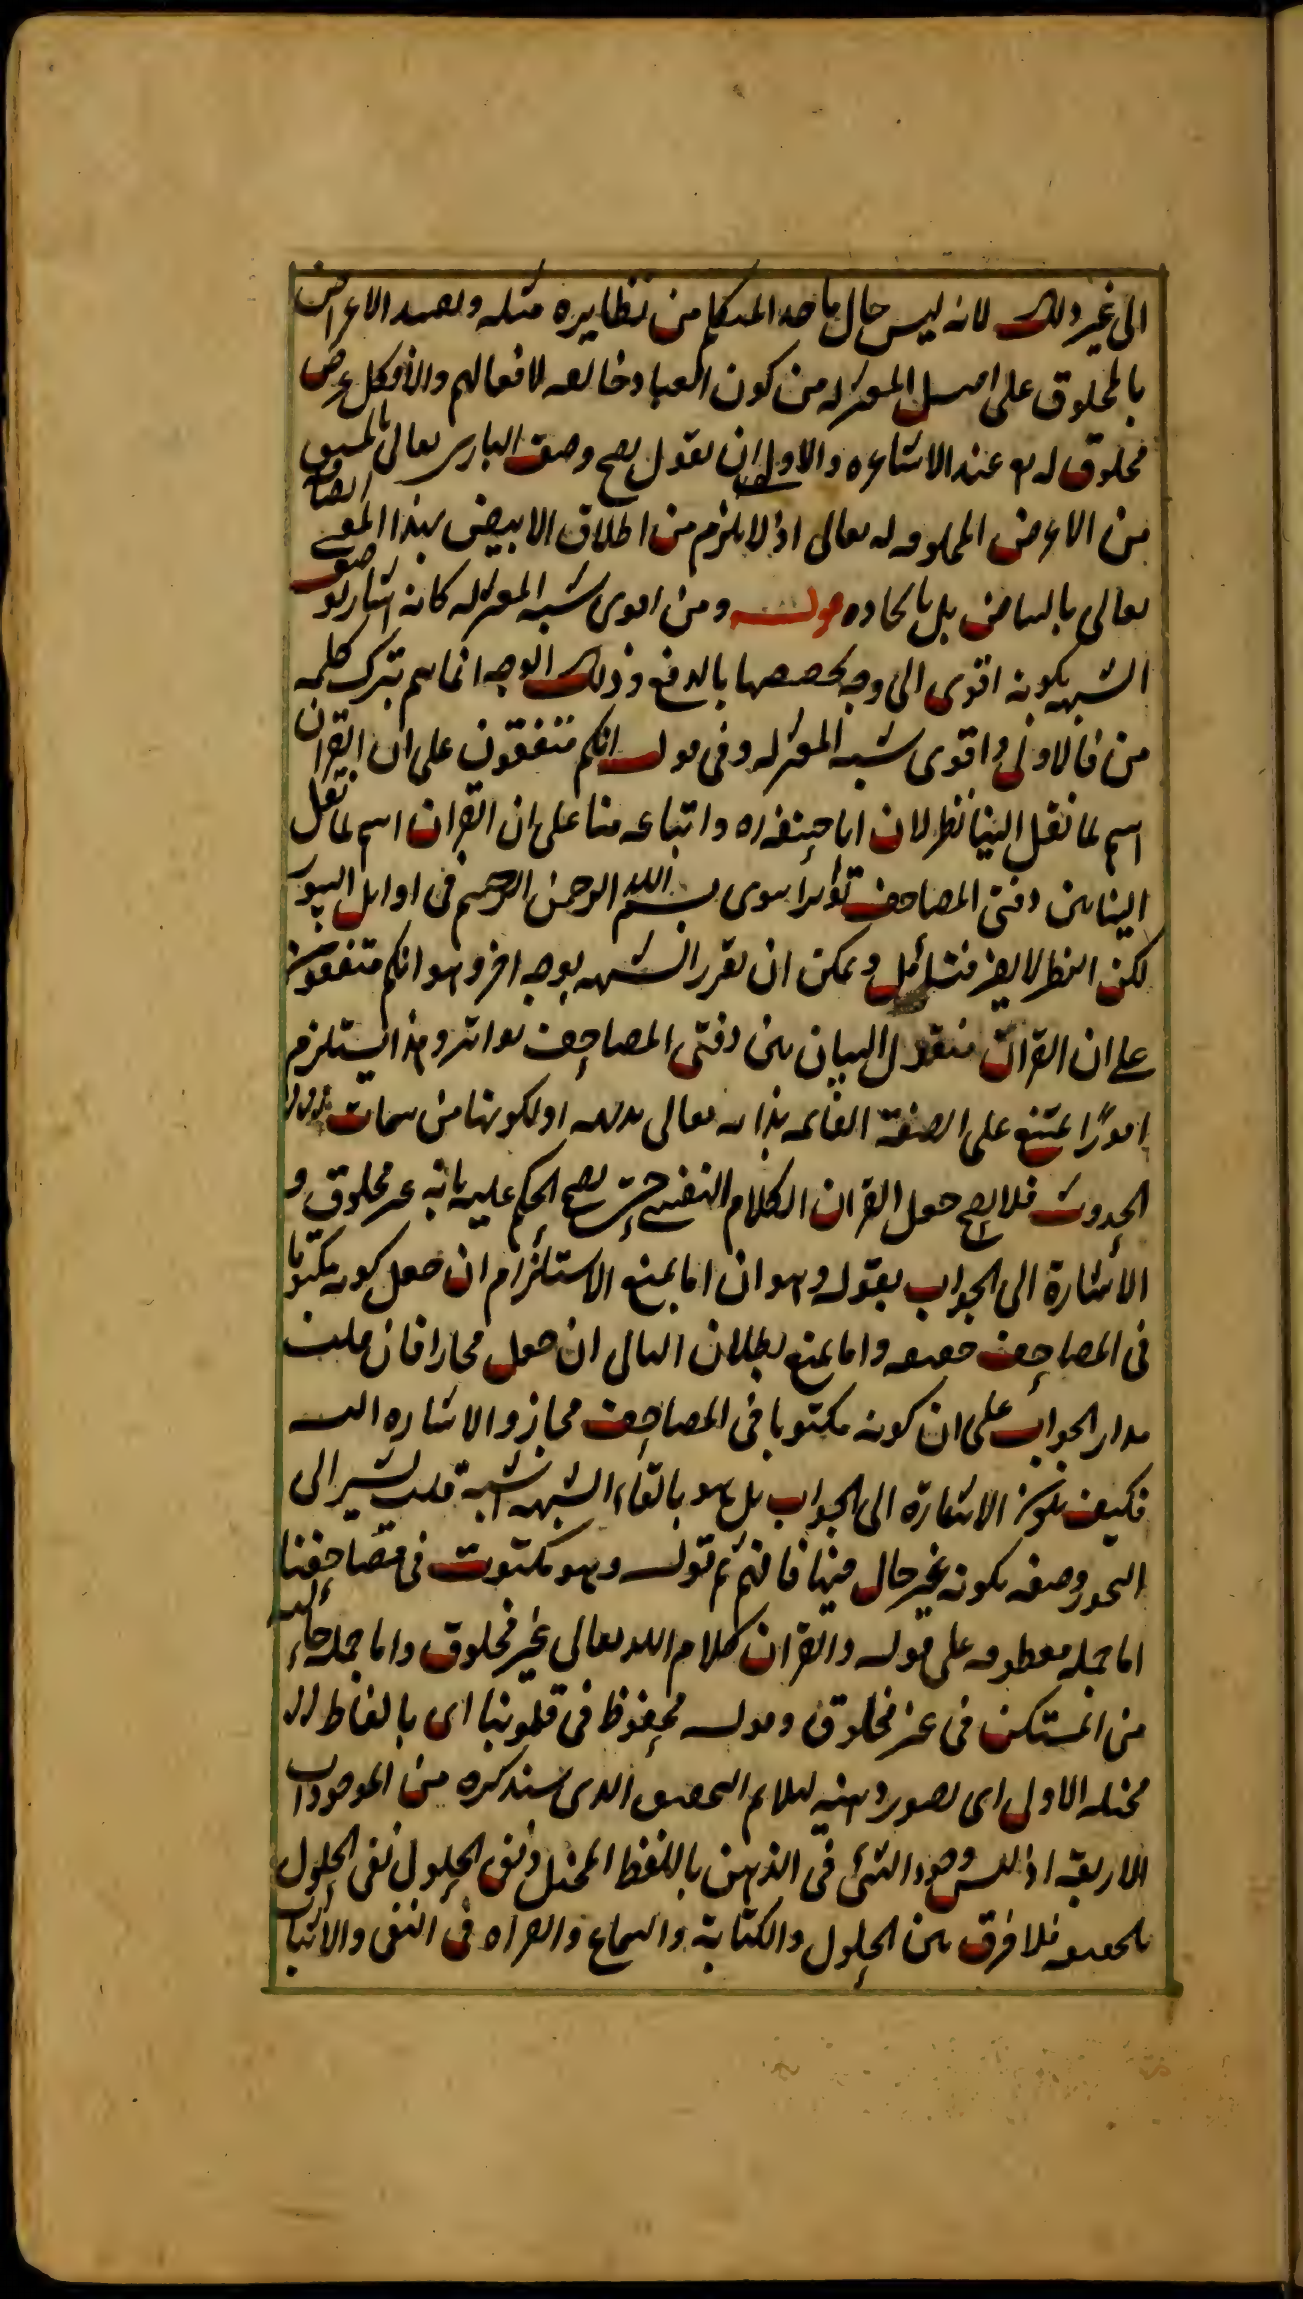 الى غير ذلك لانه ليس حال ما عدا المتكلم من نظايره مثله وتقييد الاعراض
بالمخلوق على اصل المعتزله من كون العباد خالقه لافعالهم والا فكل عرض
مخلوق له تع عند الاشاعره والاولى ان يقول يصح وصف البارى تعالى بالمشتق
من الاعراض المخلوقه له تعالى اذ لا يلزم من اطلاق الابيض بهذا المعنى اتصافه
تعالى بالبياض بل بايجاده قوله ومن اقوى شبه المعتزله كانه اشار بوصف
الشبه بكونه اقوى الى وجه تخصيصها بالدفع وذلك الوجه انما يتم بترك كلمه
من فالاولى واقوى شبه المعتزله وفى قوله انكم متفقون على ان القران
اسم لما نقل الينا نظر لان ابا حنيفه ره واتباعه منا على ان القران اسم لما نقل
الينا بين دفتى المصاحف تواترا سوى بسم الله الرحمن الرحيم فى اوايل السور
لكن النظر لا يضر فتأمل ويمكن ان تقرر الشبهه بوجه اخر وهو انكم متفقون
على ان القران منقول الينا بين دفتى المصاحف تواترا وهذا يستلزم
امورًا تمتنع على الصفة القائمه بذاته تعالى بديهه او لكونها من سمات
الحدوث فلا يصح جعل القران الكلام النفسى حتى يصح الحكم عليه بانه غير مخلوق و
الاشارة الى الجواب بقوله وهو ان اما بمنع الاستلزام ان جعل كونه مكتوبا
فى المصاحف حقيقه واما بمنع بطلان التالى ان جعل مجازا فان قلت
مدار الجواب على ان كونه مكتوبا فى المصاحف مجاز والاشاره اليه
فكيف يكون الاشارة الى الجواب بل هو بالقاء الشبهه اشبه قلت يشير الى
التجوز وصفه بكونه غير حال فيها فافهم ثم قوله وهو مكتوب فى مصاحفنا
اما جمله معطوفه على قوله والقران كلام الله تعالى غير مخلوق واما جمله حاليه
من المستكن فى غير مخلوق وقوله محفوظ فى قلوبنا اى بالفاظ
مخيله الاولى اى بصور ذهنيه ليلايم التحقيق الذى سنذكره من الموجودات
الاربعة اذ ليس وجود الشئ فى الذهن باللفظ المخيل ونفى الحلول نفى الحلول
بالحقيقه فلا فرق بين الحلول والكتابة والسماع والقراه فى النفى والاثبات